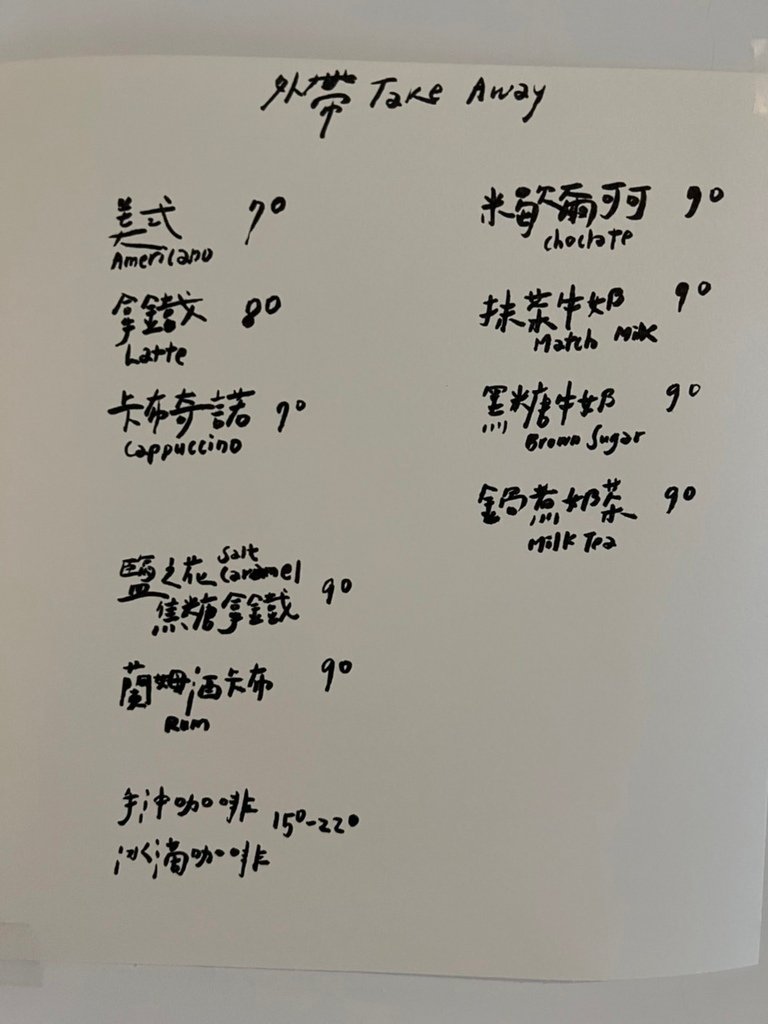 外帶 Take Away
美式 70
Americano
拿鐵 80
Latte
卡布奇諾 70
Cappuccino
鹽之花 Salt Caramel
焦糖拿鐵 90
蘭姆酒卡布 90
Rum
手沖咖啡 150-220
冰滴咖啡
米歇爾可可 90
choclate
抹茶牛奶 90
Match Milk
黑糖牛奶 90
Brown Sugar
鍋煮奶茶 90
Milk Tea